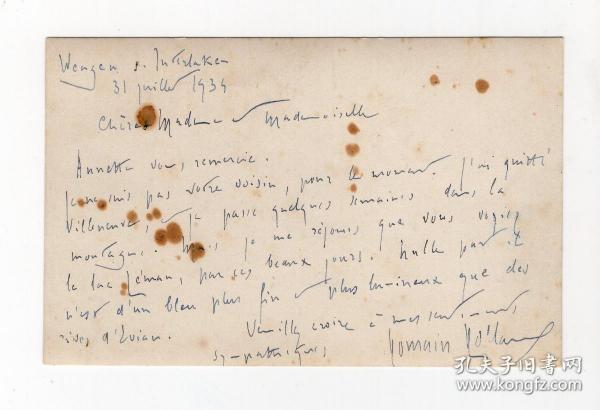 Wengen s. Interlaken
31 juillet 1934
Chères Madame et Mademoiselle
Annette vous remercie.
Je ne suis pas votre voisin, pour le moment. J'ai quitté
Villeneuve, et je passe quelques semaines dans la
montagne. Mais je me réjouis que vous voyiez
le lac Léman, par ces beaux jours. Nulle part il
n'est d'un bleu plus fin et plus lumineux que des
rives d'Evian.
Veuillez croire à mes sentiments
sympathiques
Romain Rolland
孔夫子旧书网
www.kongfz.com